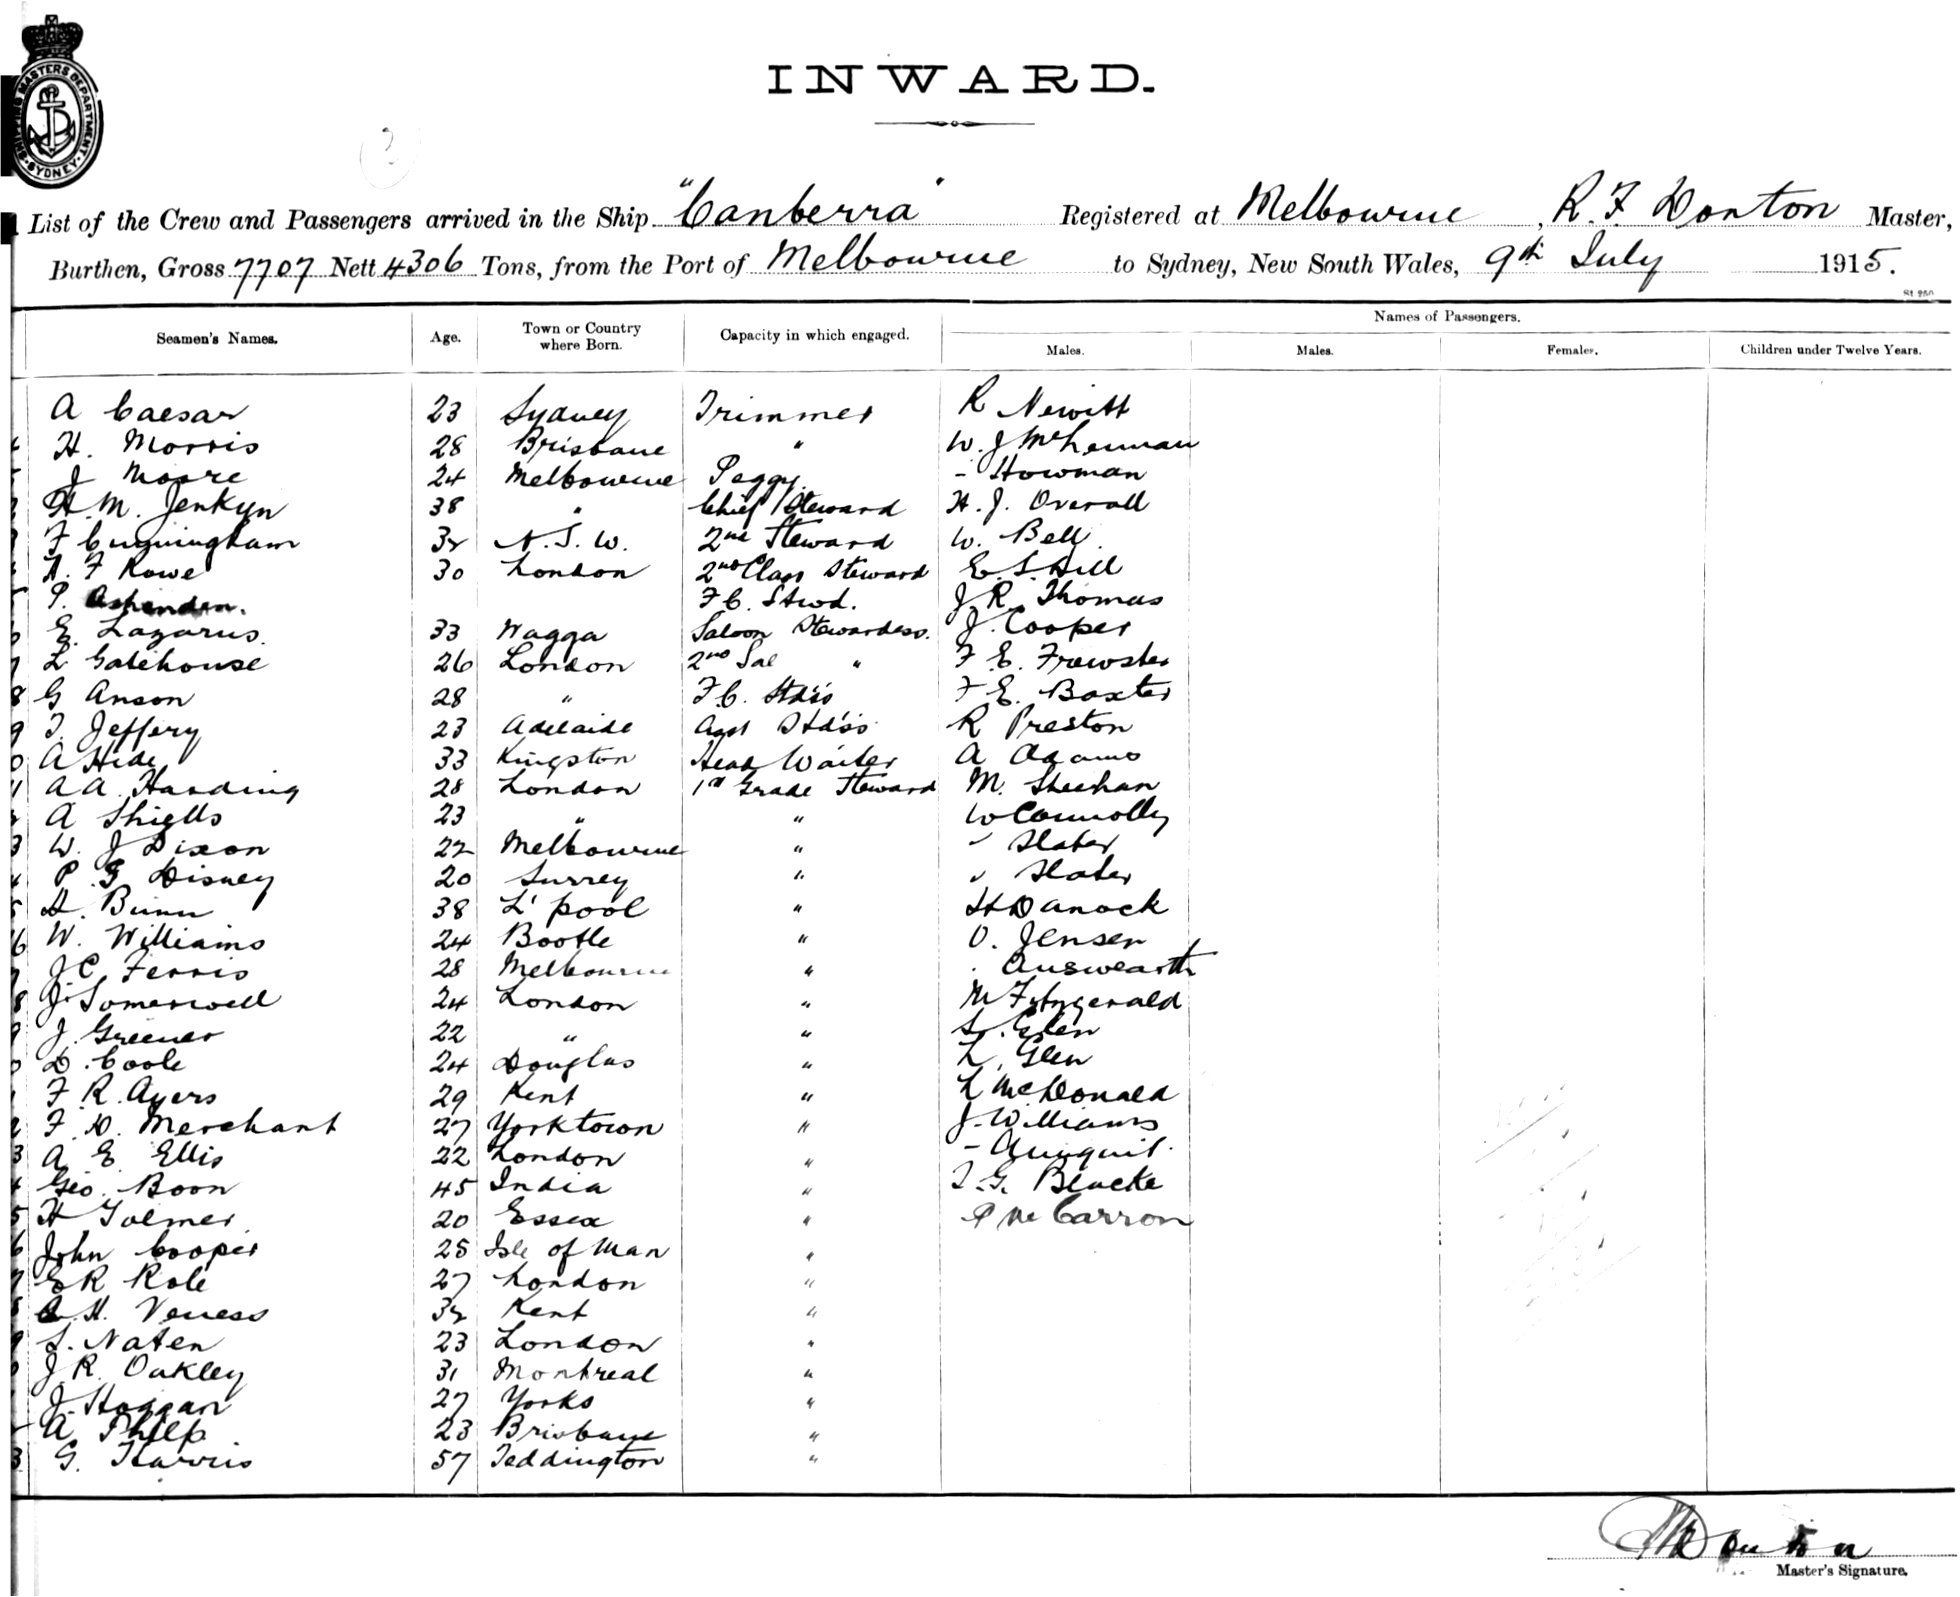 SHIPPING MASTERS DEPARTMENT. SYDNEY
INWARD.
List of the Crew and Passengers arrived in the Ship "Canberra" Registered at Melbourne, R. F Donton Master,
Burthen, Gross 7707 Nett 4306 Tons, from the Port of Melbourne to Sydney, New South Wales, 9th July 1915.
Names of Passengers.
Seamen's Names. Age. Town or Country where Born. Capacity in which engaged. Males. Males. Females. Children under Twelve Years.
A Caesar 23 Sydney Trimmer R Newitt
H. Morris 28 Brisbane " W. J
J Moore 24 Melbourne Peggy. - Howman
H. M. Jenkyn 38 " Chief Steward H. J. Overall
F Cunningham 32 N. S. W. 2nd Steward W. Bell
H. F Rowe 30 London 2nd Class Steward E. S. Hill
P. Ashenden. F C. Stwd. J R. Thomas
E. Lazarus. 33 Wagga Saloon Stewardess. J. Cooper
L Gatehouse 26 London 2nd Sal " F E. Frewster
8 G Anson 28 " F. C. Std'ss F E. Baxter
9 T. Jeffery 23 Adelaide Asst Std'ss R Preston
0 A Hide 33 Kingston Head Waiter A Adams
11 A A. Harding 28 London 1st Grade Steward M. Sheehan
A Shiells 23 " " W Connolly
3 W. J Dixon 22 Melbourne " " Slater
P. G Disney 20 Surrey " " Slater
5 H. Bunn 38 L'pool " Danock
16 W. Williams 24 Bootle " O. Jensen
J C. Ferris 28 Melbourne " Auswearth
8 J. Somerwell 24 London " M Fitzgerald
J. Greener 22 " " S. Glen
D. Coole 24 Douglas " L. Glen
F. R. Ayers 29 Kent " L McDonald
2 F. D. Merchant 27 Yorktown " J. Williams
3 A. E. Ellis 22 London " -
Geo. Boon 45 India " T. G. Blacke
5 H Tolmer 20 Essex " P McCarron
6 John Cooper 25 Isle of Man "
7 E R Role 27 London "
8 H. Veness 32 Kent "
9 S. Naten 23 London "
J. R. Oakley 31 Montreal "
J. Hoggan 27 Yorks "
A Philp 23 Brisbane "
3 G. Harris 57 Teddington "
Master's Signature.